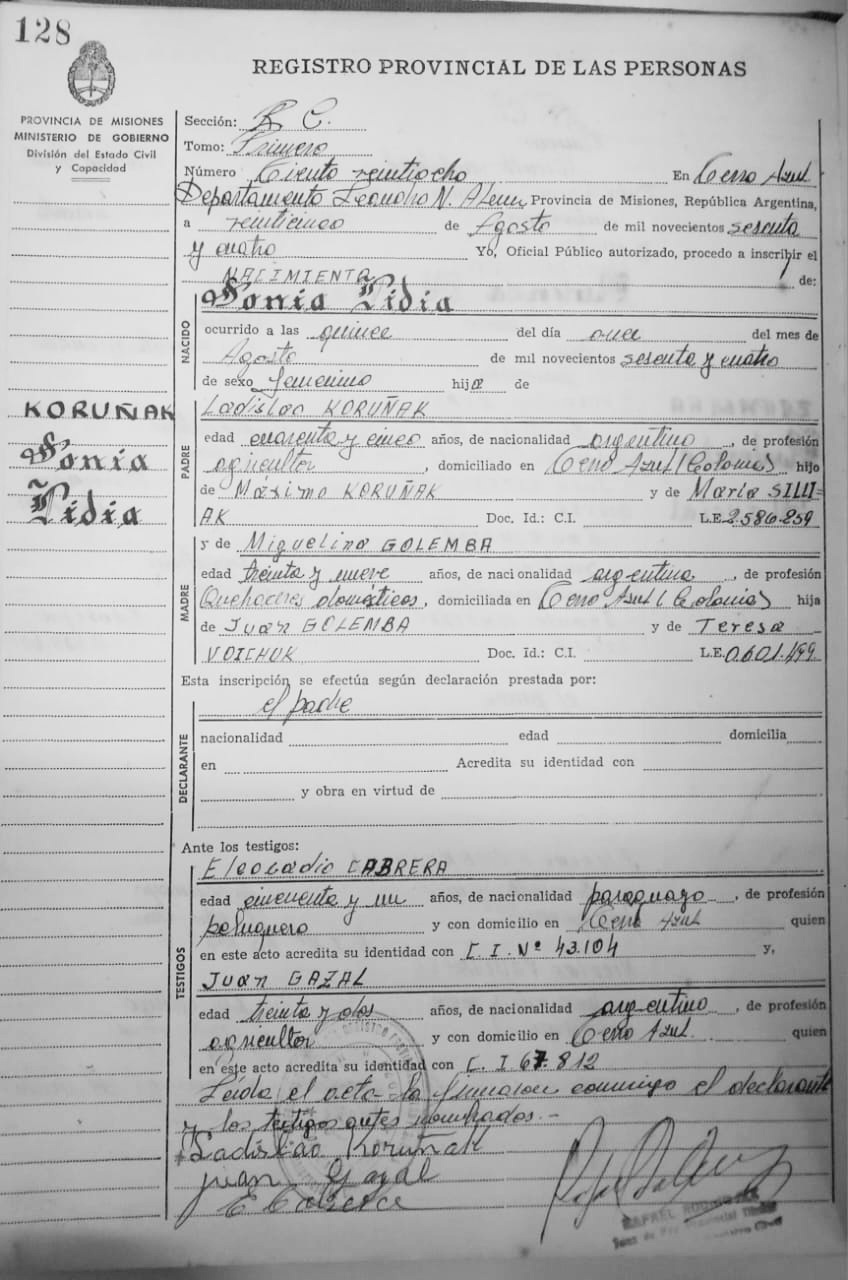 128
REGISTRO PROVINCIAL DE LAS PERSONAS
PROVINCIA DE MISIONES
MINISTERIO DE GOBIERNO
División del Estado Civil
y Capacidad
KORUÑAK
Sonia
Lidia
Sección: R C.
Tomo: Primero
Número Ciento veintiocho En Cerro Azul
Departamento Leandro N. Alem Provincia de Misiones, República Argentina,
a veinticinco de Agosto de mil novecientos sesenta
y cuatro Yo, Oficial Público autorizado, procedo a inscribir el
NACIMIENTO de:
NACIDO
Sonia Lidia
ocurrido a las quince del día once del mes de
Agosto de mil novecientos sesenta y cuatro
de sexo femenino hija de
PADRE
Ladislao KORUÑAK
edad cuarenta y cinco años, de nacionalidad argentino, de profesión
agricultor, domiciliado en Cerro Azul (Colonia) hijo
de Máximo KORUÑAK y de María SILLI=
AK Doc. Id.: C.I. L.E. 2.586.259
MADRE
y de Miguelina GOLEMBA
edad treinta y nueve años, de nacionalidad argentina, de profesión
Quehaceres domésticos, domiciliada en Cerro Azul (Colonia) hija
de Juan GOLEMBA y de Teresa
VOICHUK Doc. Id.: C.I. L.E. 0.601.499
Esta inscripción se efectúa según declaración prestada por:
DECLARANTE
el padre
nacionalidad edad domicilia
en Acredita su identidad con
y obra en virtud de
Ante los testigos:
TESTIGOS
Eleocadio CABRERA
edad cincuenta y un años, de nacionalidad paraguayo, de profesión
peluquero y con domicilio en Cerro Azul quien
en este acto acredita su identidad con C. I. Nº 43.104 y,
Juan GAZAL
edad treinta y dos años, de nacionalidad argentino, de profesión
agricultor y con domicilio en Cerro Azul. quien
en este acto acredita su identidad con C. I 67.812
Leída el acta la firmaron conmigo el declarante
y los testigos antes nombrados.-
Ladislao Koruñak
Juan Gazal
E Cabrera
RAFAEL